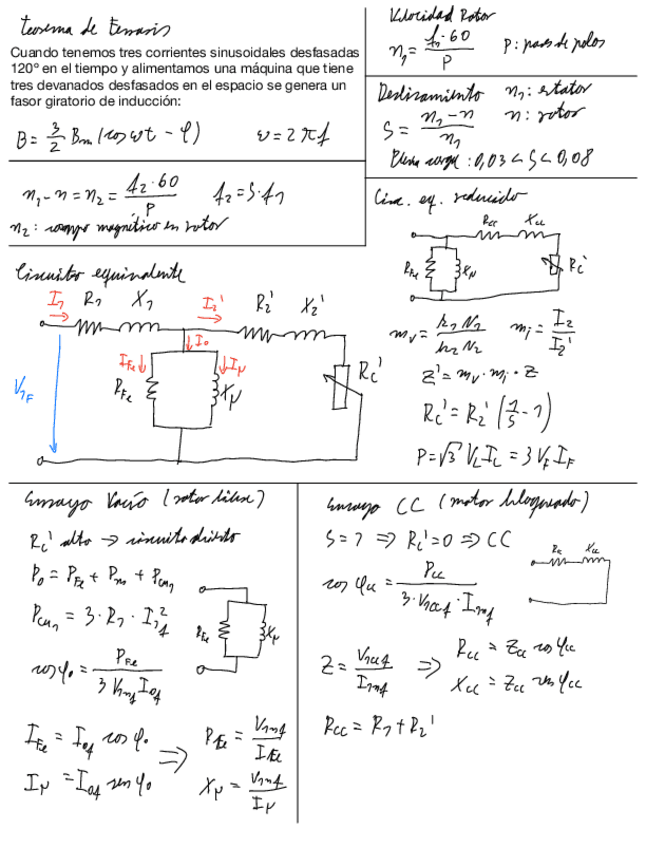 Teorema de Ferraris
Cuando tenemos tres corrientes sinusoidales desfasadas
120º en el tiempo y alimentamos una máquina que tiene
tres devanados desfasados en el espacio se genera un
fasor giratorio de inducción:
B = 3/2 Bm (cos ωt - φ)    ω = 2πf
Velocidad Rotor
n₁ = f₁·60/P    P: pares de polos
Deslizamiento    n₁: estator
S = (n₁ - n)/n₁    n: rotor
Plena carga: 0,03 < S < 0,08
n₁ - n = n₂ = f₂·60/P    f₂ = S·f₁
n₂: campo magnético en rotor
Circ. eq. reducido
Rcc Xcc
RFe Xμ Rc'
mv = k₁N₂/k₂N₂    mi = I₂/I₂'
Z' = mv·mi·Z
Rc' = R₂' (1/S - 1)
P = √3 VL IL = 3 VF IF
Circuito equivalente
I₁ R₁ X₁ I₂' R₂' X₂'
I₀
IFe Iμ
RFe Xμ Rc'
V₁F
Ensayo Vacío (rotor libre)
Rc' alto → circuito abierto
P₀ = PFe + Pm + Pcu₁
Pcu₁ = 3·R₁·I₁f²
RFe Xμ
cos φ₀ = PFe/(3 V₁nf I₀f)
IFe = I₀f cos φ₀ ⇒ RFe = V₁nf/IFe
Iμ = I₀f sen φ₀    Xμ = V₁nf/Iμ
Ensayo CC (motor bloqueado)
S = 1 ⇒ Rc' = 0 ⇒ CC
Rcc Xcc
cos φcc = Pcc/(3·V₁ccf·I₁nf)
Z = V₁ccf/I₁nf ⇒ Rcc = Zcc cos φcc
Xcc = Zcc sen φcc
Rcc = R₁ + R₂'